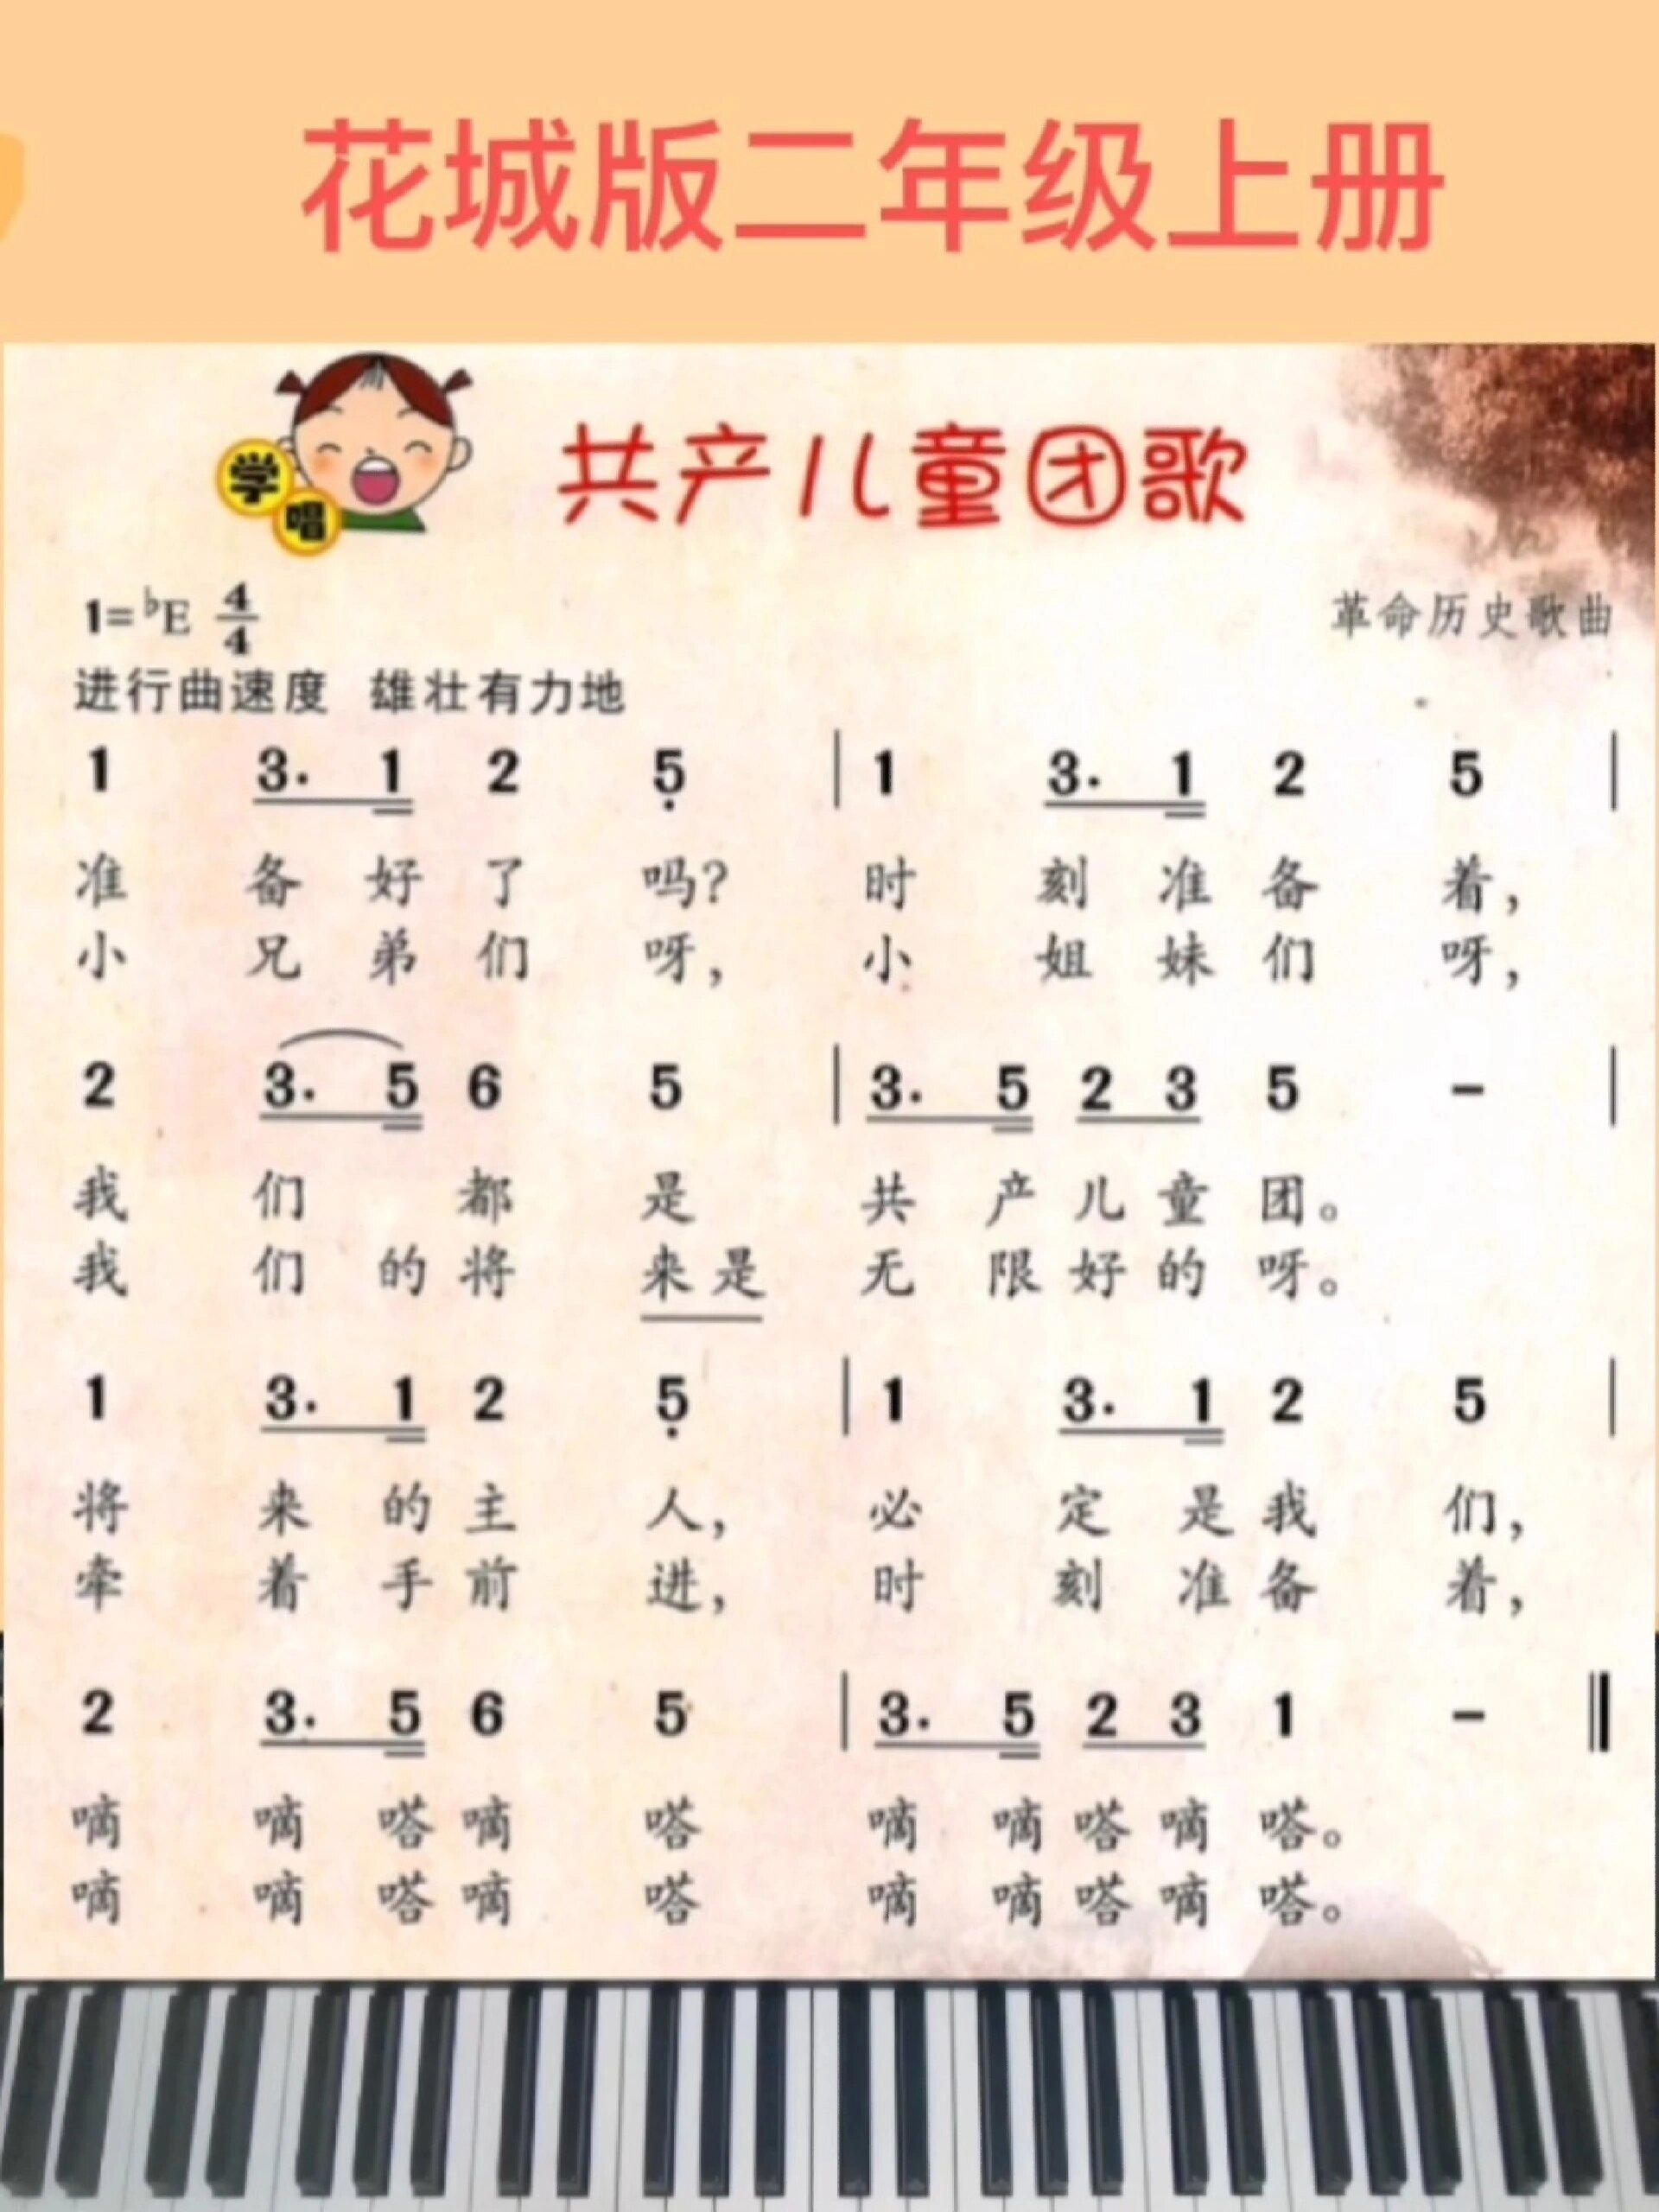 花城版二年级上册
学唱
共产儿童团歌
1=♭E 4/4
革命历史歌曲
进行曲速度 雄壮有力地
1 3. 1 2 5̣ | 1 3. 1 2 5 |
准 备 好 了 吗? 时 刻 准 备 着,
小 兄 弟 们 呀, 小 姐 妹 们 呀,
2 3. 5 6 5 | 3. 5 2 3 5 - |
我 们 都 是 共 产 儿 童 团。
我 们 的 将 来 是 无 限 好 的 呀。
1 3. 1 2 5̣ | 1 3. 1 2 5 |
将 来 的 主 人, 必 定 是 我 们,
牵 着 手 前 进, 时 刻 准 备 着,
2 3. 5 6 5 | 3. 5 2 3 1 - ‖
嘀 嘀 嗒 嘀 嗒 嘀 嘀 嗒 嘀 嗒。
嘀 嘀 嗒 嘀 嗒 嘀 嘀 嗒 嘀 嗒。